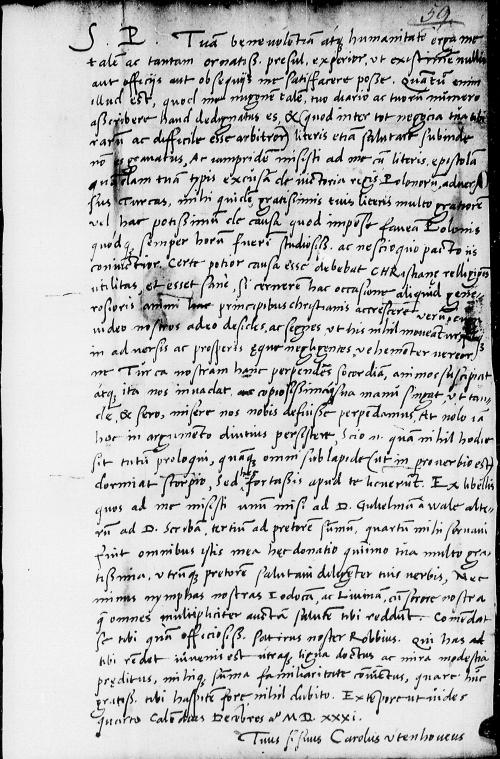 59
S. P. Tuam benevolētiā atq humanitatē erga me
talē ac tantam ornatiss. presul, experior, ut existimem nullis
aut officijs aut obsequijs me satisfacere posse. Quātū enim
illud est, quod me nugonē talē, tuo diario ac tuorū numero
asscribere haud dedignatus es, & (quod inter tot negocia tua tibi
rarū ac difficile esse arbitror) literis etiā salutare subinde
nō es gravatus, Ac iampridē misisti ad me cū literis, epistolā
quādam tuā typis excusā de victoria regis Polonorū, adver
sus Turcas, mihi quidē gratissimis tuis literis multo gratiorē
vel hac potissimū de causa quod impēse faveā Polonis
quodq semper horū fuerī studiosiss. ac nescio quo pacto iis
coniūctior. Certe potior causa esse debebat CHRistianę religionis
utilitas, et esset sane, si cernerē hac occasione aliquid gene-
rosioris animi hac principibus christianis accrescere. verum
video nostros adeo desides, ac segnes ut his nihil moveant
in adversis ac prosperis ęque negligentes, vehemēter vereor,
ne Turca nostram hanc perpendēs socordiā, animos suscipiat
atq ita nos invadat, ac copiosissimā sua manū stringat, ut tan-
dē, & sero, misere nos nobis defuisse perpendamus, At nolo iā
hoc in argumēto diutius persistere, Scio n. quam nihil hodie
sit tutū proloqui, quāq omni sub lapide (ut in proverbio est)
dormiat scorpio, Sed hęc fortassis apud te licuerūt. Ex libellis
quos ad me misisti unū misi ad D. Gulielmū a Wale alte-
rū ad D. Scribā, tertiū ad pretorē sūmū, quartū mihi servavi
fuit omnibus istis mea hęc donatio quiīmo tua multo gra
tissima, utrūq pretorē salutavi diligēter tuis verbis, Nec
minus nymphas nostras Iodocā, ac Livinā, cū sorore nostra
q̄ omnes multipliciter auctā salutē tibi reddūt. Comēdat
se tibi quā officiosiss. Satirus noster Robbius. Qui has
tibi reddat iuvenis est utraq lingua doctus ac mira modestia
pręditus, mihiq summa familiaritate coniūctus, quare hūc
gratiss. tibi hospitē fore nihil dubito. Extēpore ut vides
quarto Calendas Decēbres aō M.D.xxxi.
Tuus Carolus Utenhovius